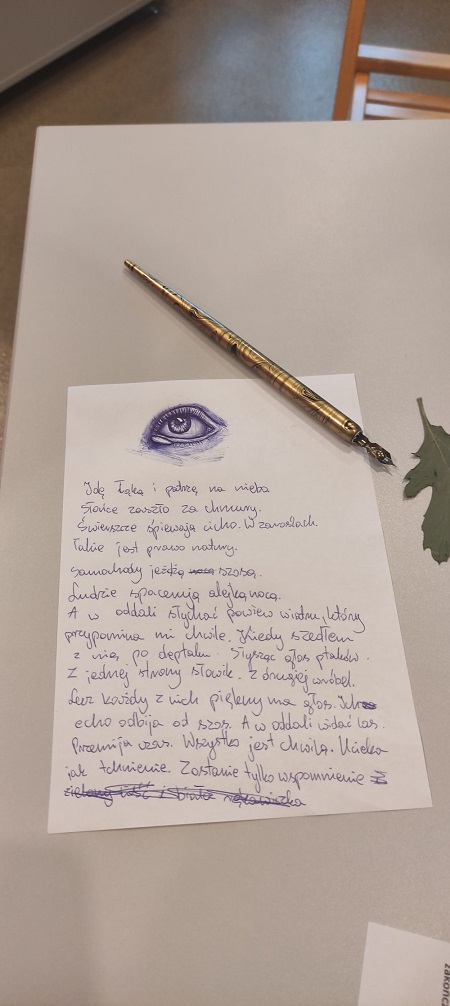 Idę łąką i patrzę na nieba
słońce zaszło za chmury.
Świerszcze śpiewają cicho. W zaroślach.
Takie jest prawo natury.
Samochody jeżdżą szosą.
Ludzie spacerują alejką nocą.
A w oddali słychać powiew wiatru, który
przypomina mi chwile. Kiedy szedłem
z nią, po deptaku. Słysząc głos ptaków.
Z jednej strony słowik. Z drugiej wróbel.
Lecz każdy z nich piękny ma głos. Ich
echo odbija od szos. A w oddali widać las.
Przemija czas. Wszystko jest chwilą. Ucieka
jak tchnienie. Zostanie tylko wspomnienie
zielony liść i biała rękawiczka
zakończ